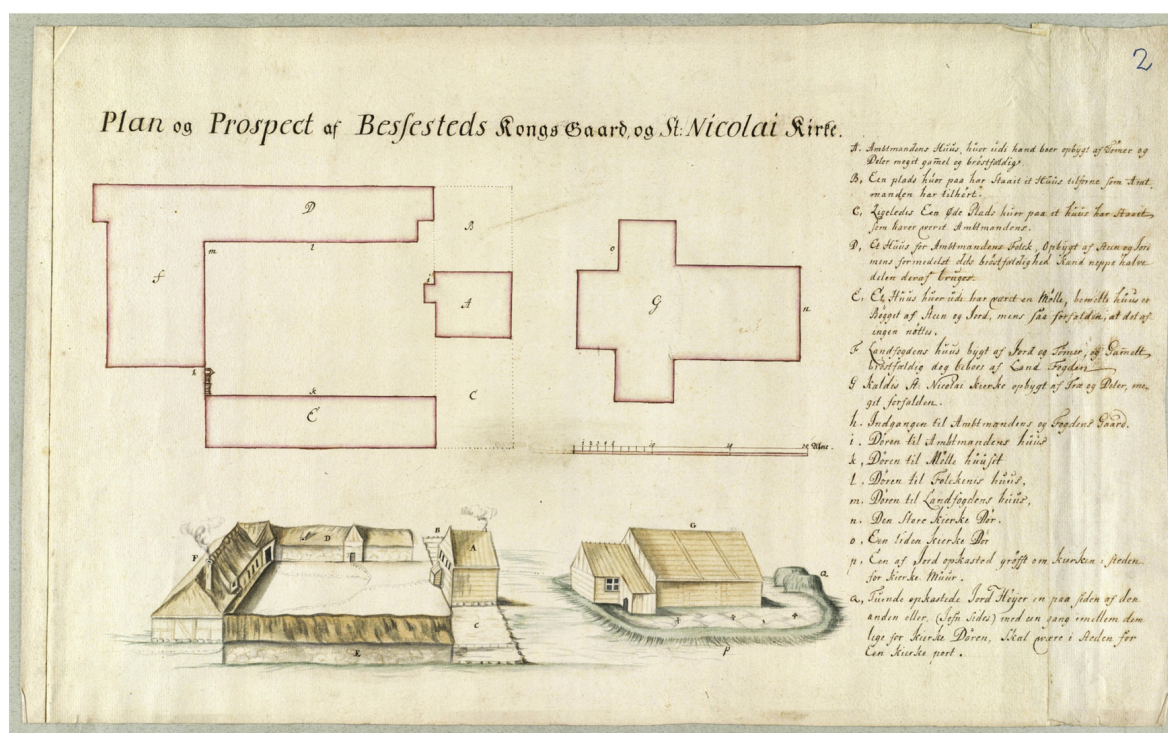 2
Plan og Prospect af Bessesteds Kongs Gaard, og St: Nicolai Kirke.
A. Ambtmandens Huus, huer udi hand boer opbygt af Tømer og
Deler meget gamel og bröstfældig.
B, Een plads huer paa har Staait it Huus tilforne som Amt
manden har tilhört.
C, Ligeledis Een Øde Plads huer paa et huus har Staait,
som haver været Ambtmandens.
D, Et Huus for Ambtmandens Folck, Opbygt af Steen og Jord
mens formedelst dets bröstfældighed Kand neppe halve
delen deraf bruges.
E, Et Huus huer udi har været en Mölle, bemelte huus er
Bögget af Steen og Jord, mens saa forfalden, at det af
ingen nöttes.
F Landfogdens huus bygt af Jord og Tömer, og Gamelt
bröstfældig dog beboes af Land Fogden
G Kaldes St: Nicolai Kierke opbygt af Træ og Deler, me
get forfalden.
h. Indgangen til Ambtmandens og Fogdens Gaard.
i. Dören til Ambtmandens huus
k, Dören til Mölle huuset
l. Dören til Folckenis huus,
m. Dören til Landfogdens huus,
n. Den Store Kierke Dör.
o. Een liden Kierke Dör
p. Een af Jord opkasted gröfft om kierken i steden
for Kierke Muur.
a, Tuende opkastede Jord Höyer en paa siden af den
anden eller (Jefn Sides) med een gang imellem dem
lige for Kierke Dören, Skal være i Steden for
Een Kierke port.
D
B
m
l
f
i
A
h
k
E
C
o
G
n
Alne.
F
D
B
A
C
E
G
a
p